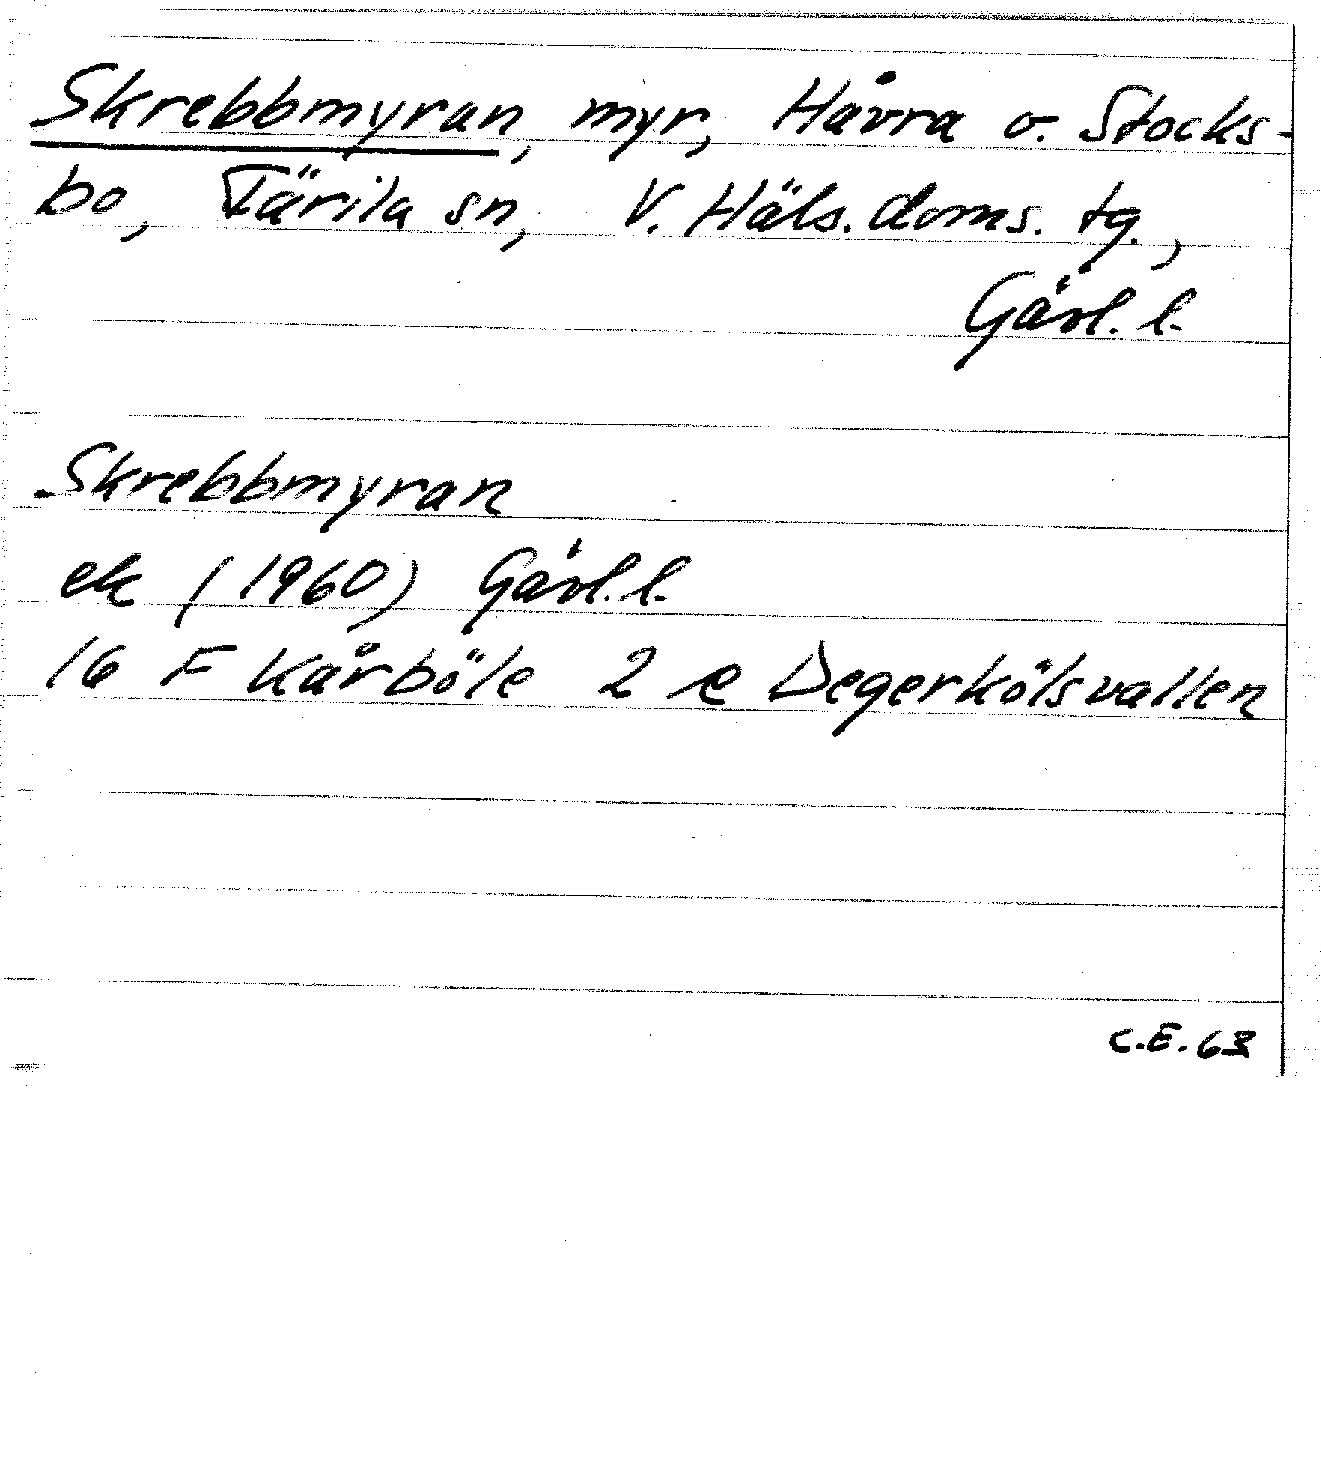 Skrebbmyran, myr, Håvra o. Stocks-
bo, Färila sn, V. Häls. doms. tg.,
Gävl. l.
Skrebbmyran
ek (1960) Gävl. l.
16 F Kårböle 2 e Degerkölsvallen
C.E. 63